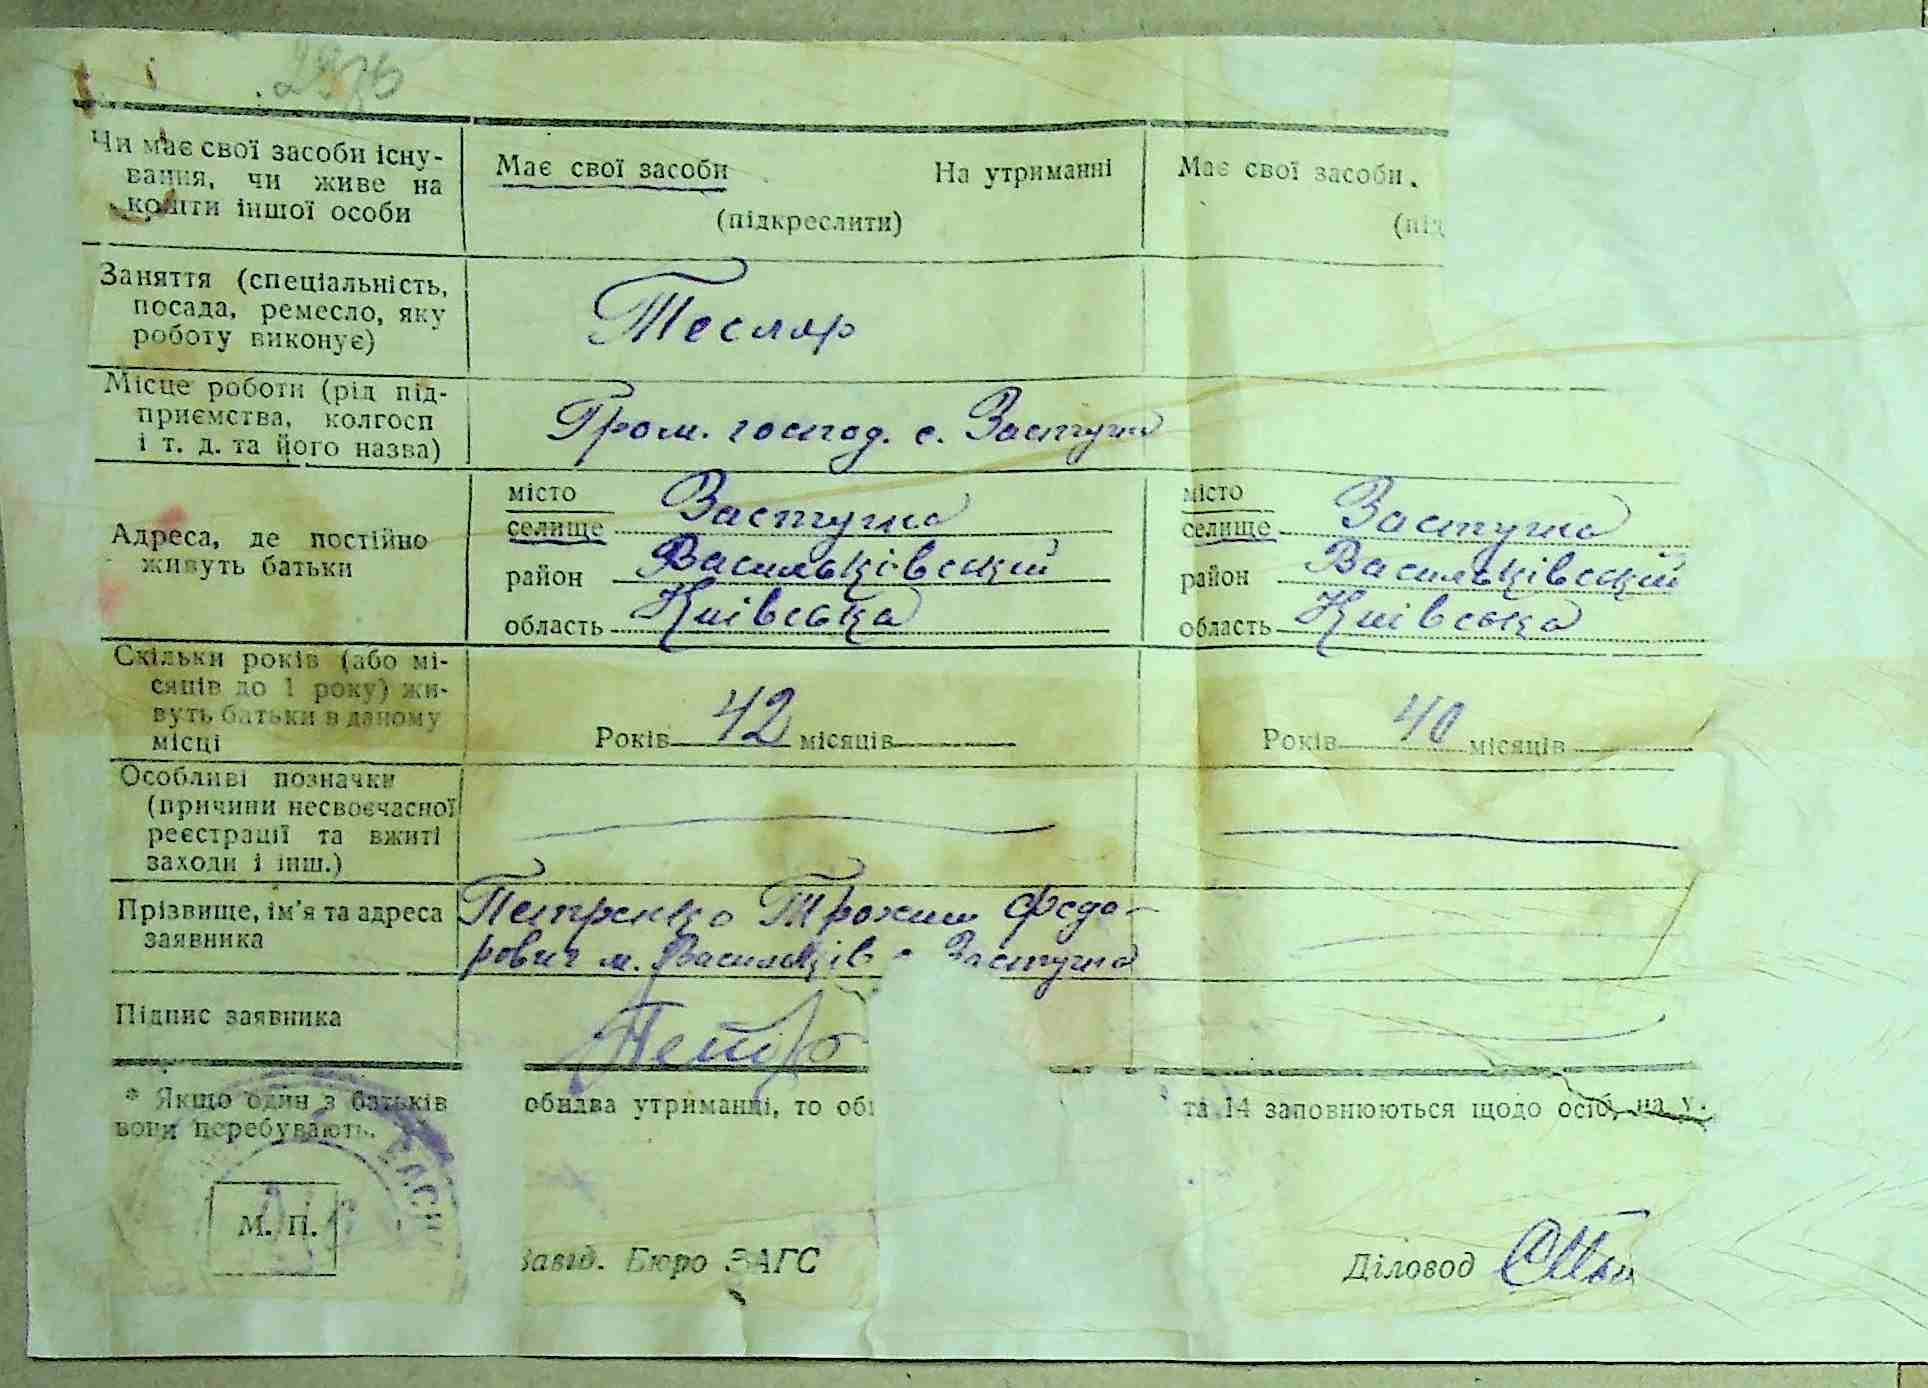 Чи має свої засоби існу-
вання, чи живе на
кошти іншої особи
Має свої засоби На утриманні
(підкреслити)
Має свої засоби
(під
Заняття (спеціальність,
посада, ремесло, яку
роботу виконує)
Тесляр
Місце роботи (рід під-
приємства, колгосп
і т. д. та його назва)
Гром. господ. с. Застугна
Адреса, де постійно
живуть батьки
місто
селище Застугна
район Васильківський
область Київська
місто
селище Застугна
район Васильківський
область Київська
Скільки років (або мі-
сяців до 1 року) жи-
вуть батьки в даному
місці
Років 42 місяців
Років 40 місяців
Особливі позначки
(причини несвоєчасної
реєстрації та вжиті
заходи і інш.)
Прізвище, ім'я та адреса
заявника
Петренко Трохим Федо-
рович м. Васильків Застугна
Підпис заявника
* Якщо один з батьків обидва утриманці, то об та 14 заповнюються щодо осіб, на у
вони перебувають.
М. П.
Завід. Бюро ЗАГС
Діловод